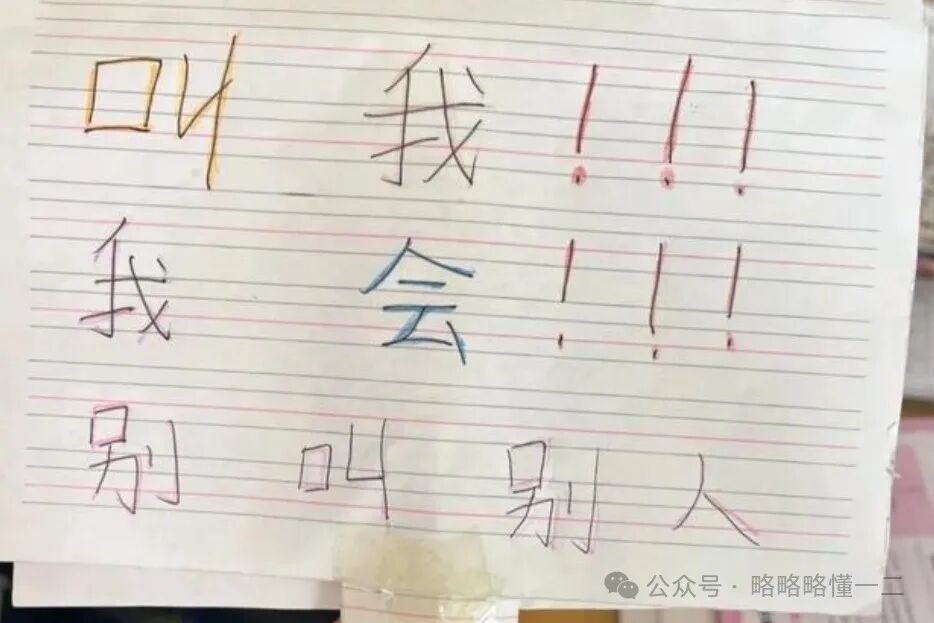 叫我!!!
我会!!!
别叫别人
公众号·略略略懂一二